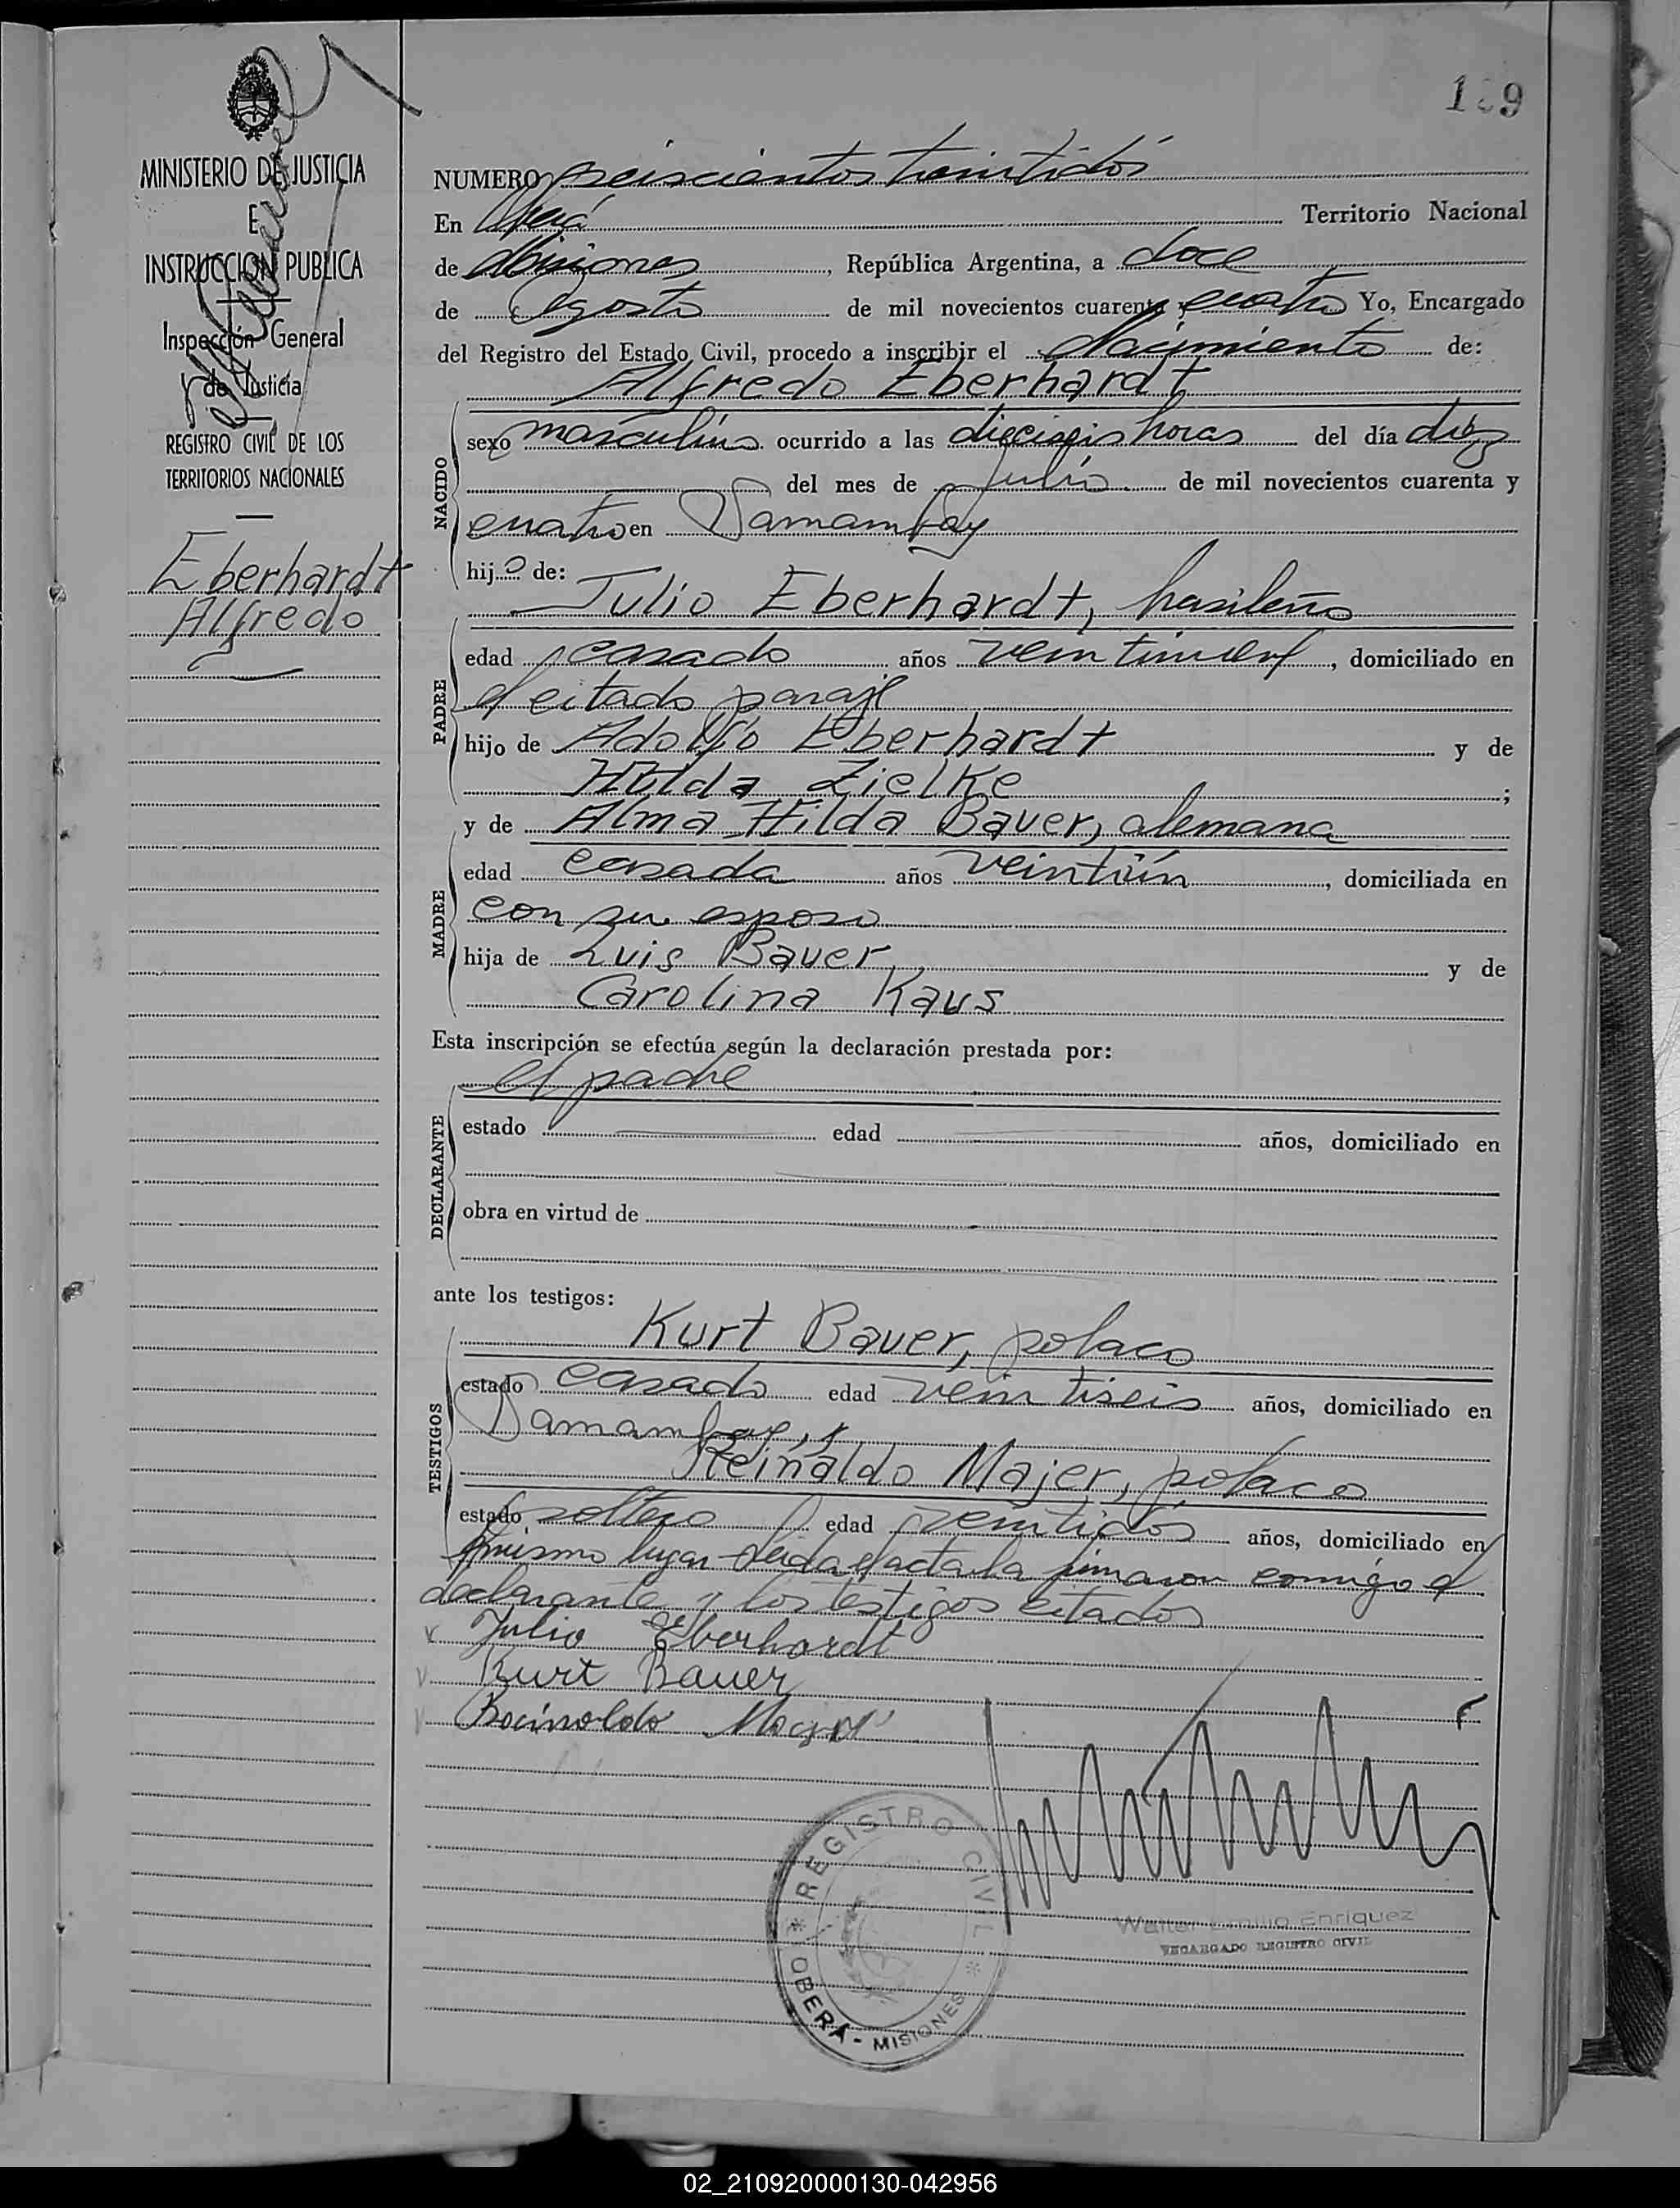 189
MINISTERIO DE JUSTICIA
E
INSTRUCCION PUBLICA
Inspección General
de Justicia
REGISTRO CIVIL DE LOS
TERRITORIOS NACIONALES
Eberhardt
Alfredo
NUMERO seiscientos treintidós
En Oberá Territorio Nacional
de Misiones, República Argentina, a doce
de Agosto de mil novecientos cuarenta y cuatro Yo, Encargado
del Registro del Estado Civil, procedo a inscribir el Nacimiento de:
Alfredo Eberhardt
NACIDO
sexo masculino ocurrido a las dieciseis horas del día diez
del mes de Julio de mil novecientos cuarenta y
cuatro en Samambay
hijo de:
Julio Eberhardt, brasileño
PADRE
edad casado años veintinueve, domiciliado en
el citado paraje
hijo de Adolfo Eberhardt y de
Hulda Zielke;
y de Alma Hilda Bauer, alemana
MADRE
edad casada años veintiún, domiciliada en
con su esposo
hija de Luis Bauer y de
Carolina Kaus
Esta inscripción se efectúa según la declaración prestada por:
el padre
DECLARANTE
estado edad años, domiciliado en
obra en virtud de
ante los testigos:
Kurt Bauer, polaco
TESTIGOS
estado casado edad veintiseis años, domiciliado en
Samambay, y
Reinaldo Majer, polaco
estado soltero edad veintidós años, domiciliado en
el mismo lugar leida el acta la firmaron conmigo el
declarante y los testigos citados
Julio Eberhardt
Kurt Bauer
Reinoldo
REGISTRO CIVIL
OBERÁ - MISIONES
Walter Emilio Enriquez
ENCARGADO REGISTRO CIVIL
02_210920000130-042956